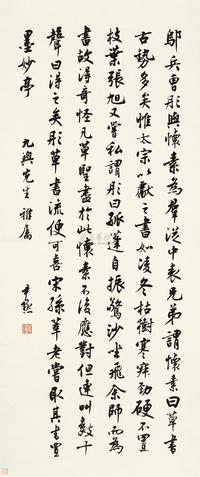 鄔兵曹彤與懷素為羣從中表兄弟謂懷素曰草書
古勢多矣惟太宗以獻之書如凌冬枯樹寒寂勁硬不置
枝葉張旭又嘗私謂彤曰孤蓬自振驚沙坐飛余師而為
書故得奇怪凡草聖盡於此懷素不復應對但連叫數十
聲曰得之矣彤草書流便可喜宋孫莘老嘗取其書置
墨妙亭
九與先生雅屬